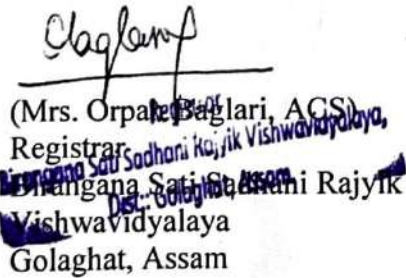 (Mrs. Orpale Baglari, ACS)
Registrar
Registrar
Birangana Sati Sadhani Rajyik Vishwavidyalaya,
Dist:: Golaghat, Assam
Birangana Sati Sadhani Rajyik
Vishwavidyalaya
Golaghat, Assam